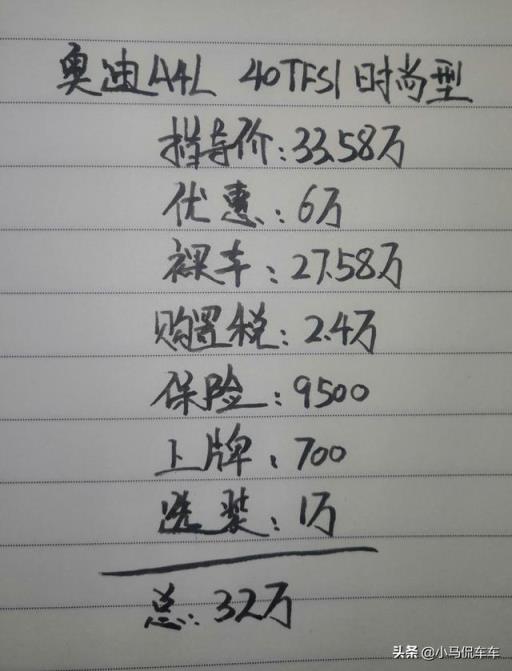 奥迪A4L 40TFSI时尚型
指导价:33.58万
优惠:6万
裸车:27.58万
购置税:2.4万
保险:9500
上牌:700
选装:1万
总:32万
头条 @小马侃车车